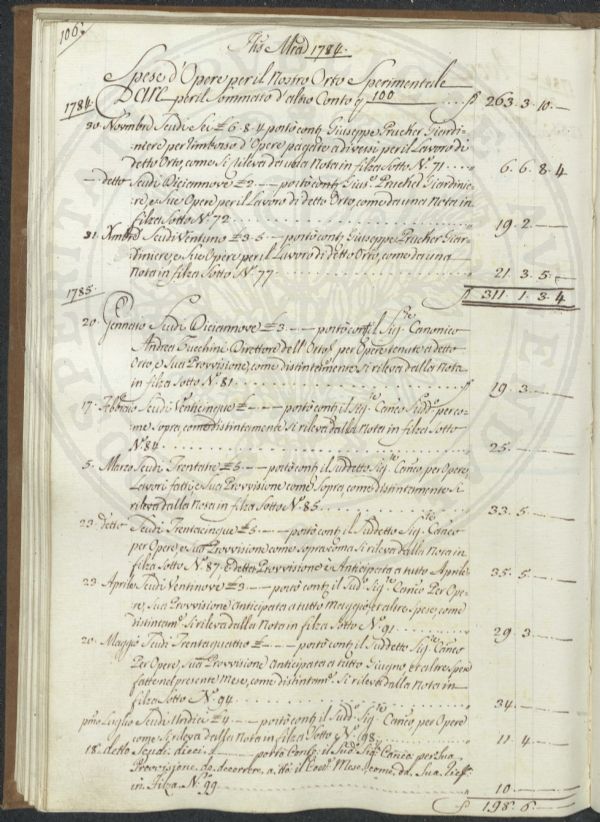 106.
Jhs Mia) 1784.
Spese d'Opere per il Nostro Orto Sperimentale
1784. DARE per il Sommato d'altro Conto q. 100 ƒ 263. 3. 10. —
30 Novmbre Scudi Sei £ 6. 8. 4 portò conti Giuseppe Prucher Giardi-
niere per rimborso d'Opere pagate a diversi per il Lavoro di
detto Orto, come si rileva da una Nota in filza Sotto N.º 71 6. 6. 8. 4
— detto Scudi Diciannove £ 2. — — portò conti Gius.e Prucher Giardinie-
re, e Sue Opere per il Lavoro di detto Orto, come da una Nota in
filza Sotto N.º 72 19. 2. —
31 Xmbre Scudi Ventuno £ 3. 5 — portò conti Giuseppe Prucher Giar-
diniere, e Sue Opere per il Lavoro di detto Orto, come da una
Nota in filza Sotto N.º 77 21. 3. 5. —
1785. ƒ 311. 1. 3. 4
20. Gennaio Scudi Diciannove £ 3. — — portò conti il Sig.re Canonico
Andrea Zucchini Direttore dell'Orto per Opere tenute a detto
Orto, e Sua Provvisione, come distintamente Si rileva dalla Nota
in filza Sotto N.º 81 19. 3. —
17. Febbraio Scudi Venticinque £ — — portò conti il Sig.re Can.co Sudd.º per co-
me sopra, come distintamente Si rileva dalla Nota in filza Sotto
N.º 84 25. —
5. Marzo Scudi Trentatre £ 5. — — portò conti il Suddetto Sig.re Can.co per Opere,
Lavori fatti, e Sua Provvisione come Sopra, come distintamente Si
rileva dalla Nota in filza Sotto N.º 85 33. 5 —
23. detto Scudi Trentacinque £ 5. — — portò conti il Suddetto Sig.re Can.co
per Opere, e Sua Provvisione come sopra, come Si rileva dalla Nota in
filza Sotto N.º 87. e detta Provvisione è Anticipata a tutto Aprile 35. 5 —
23. Aprile Scudi Ventinove £ 3 — — portò conti il Sud.º Sig.re Can.co Per Ope-
re, Sua Provvisione anticipata a tutto Maggio, et altre Spese, come
distintam.e Si rileva dalla Nota in filza Sotto N.º 91 29. 3 —
20. Maggio Scudi Trentaquattro £ — — — portò conti il Suddetto Sig.re Can.co
Per Opere, Sua Provvisione anticipata a tutto Giugno, et altre Spese
fatte nel presente Mese, come distintam.e Si rilevi dalla Nota in
filza Sotto N.º 94 34. —
pmo Luglio Scudi Undici £ 4. — — portò conti il Sud.º Sig.re Can.co per Opere
come si rileva dalla Nota in filza Sotto N.º 98 11. 4 —
18. detto Scudi dieci — portò Conti il Sud.º Sig.re Can.co per Sua
Provvisione da decorrere a tto il Mese, come da Sua
in Filza N.º 99 10. —
ƒ 198. 6. —